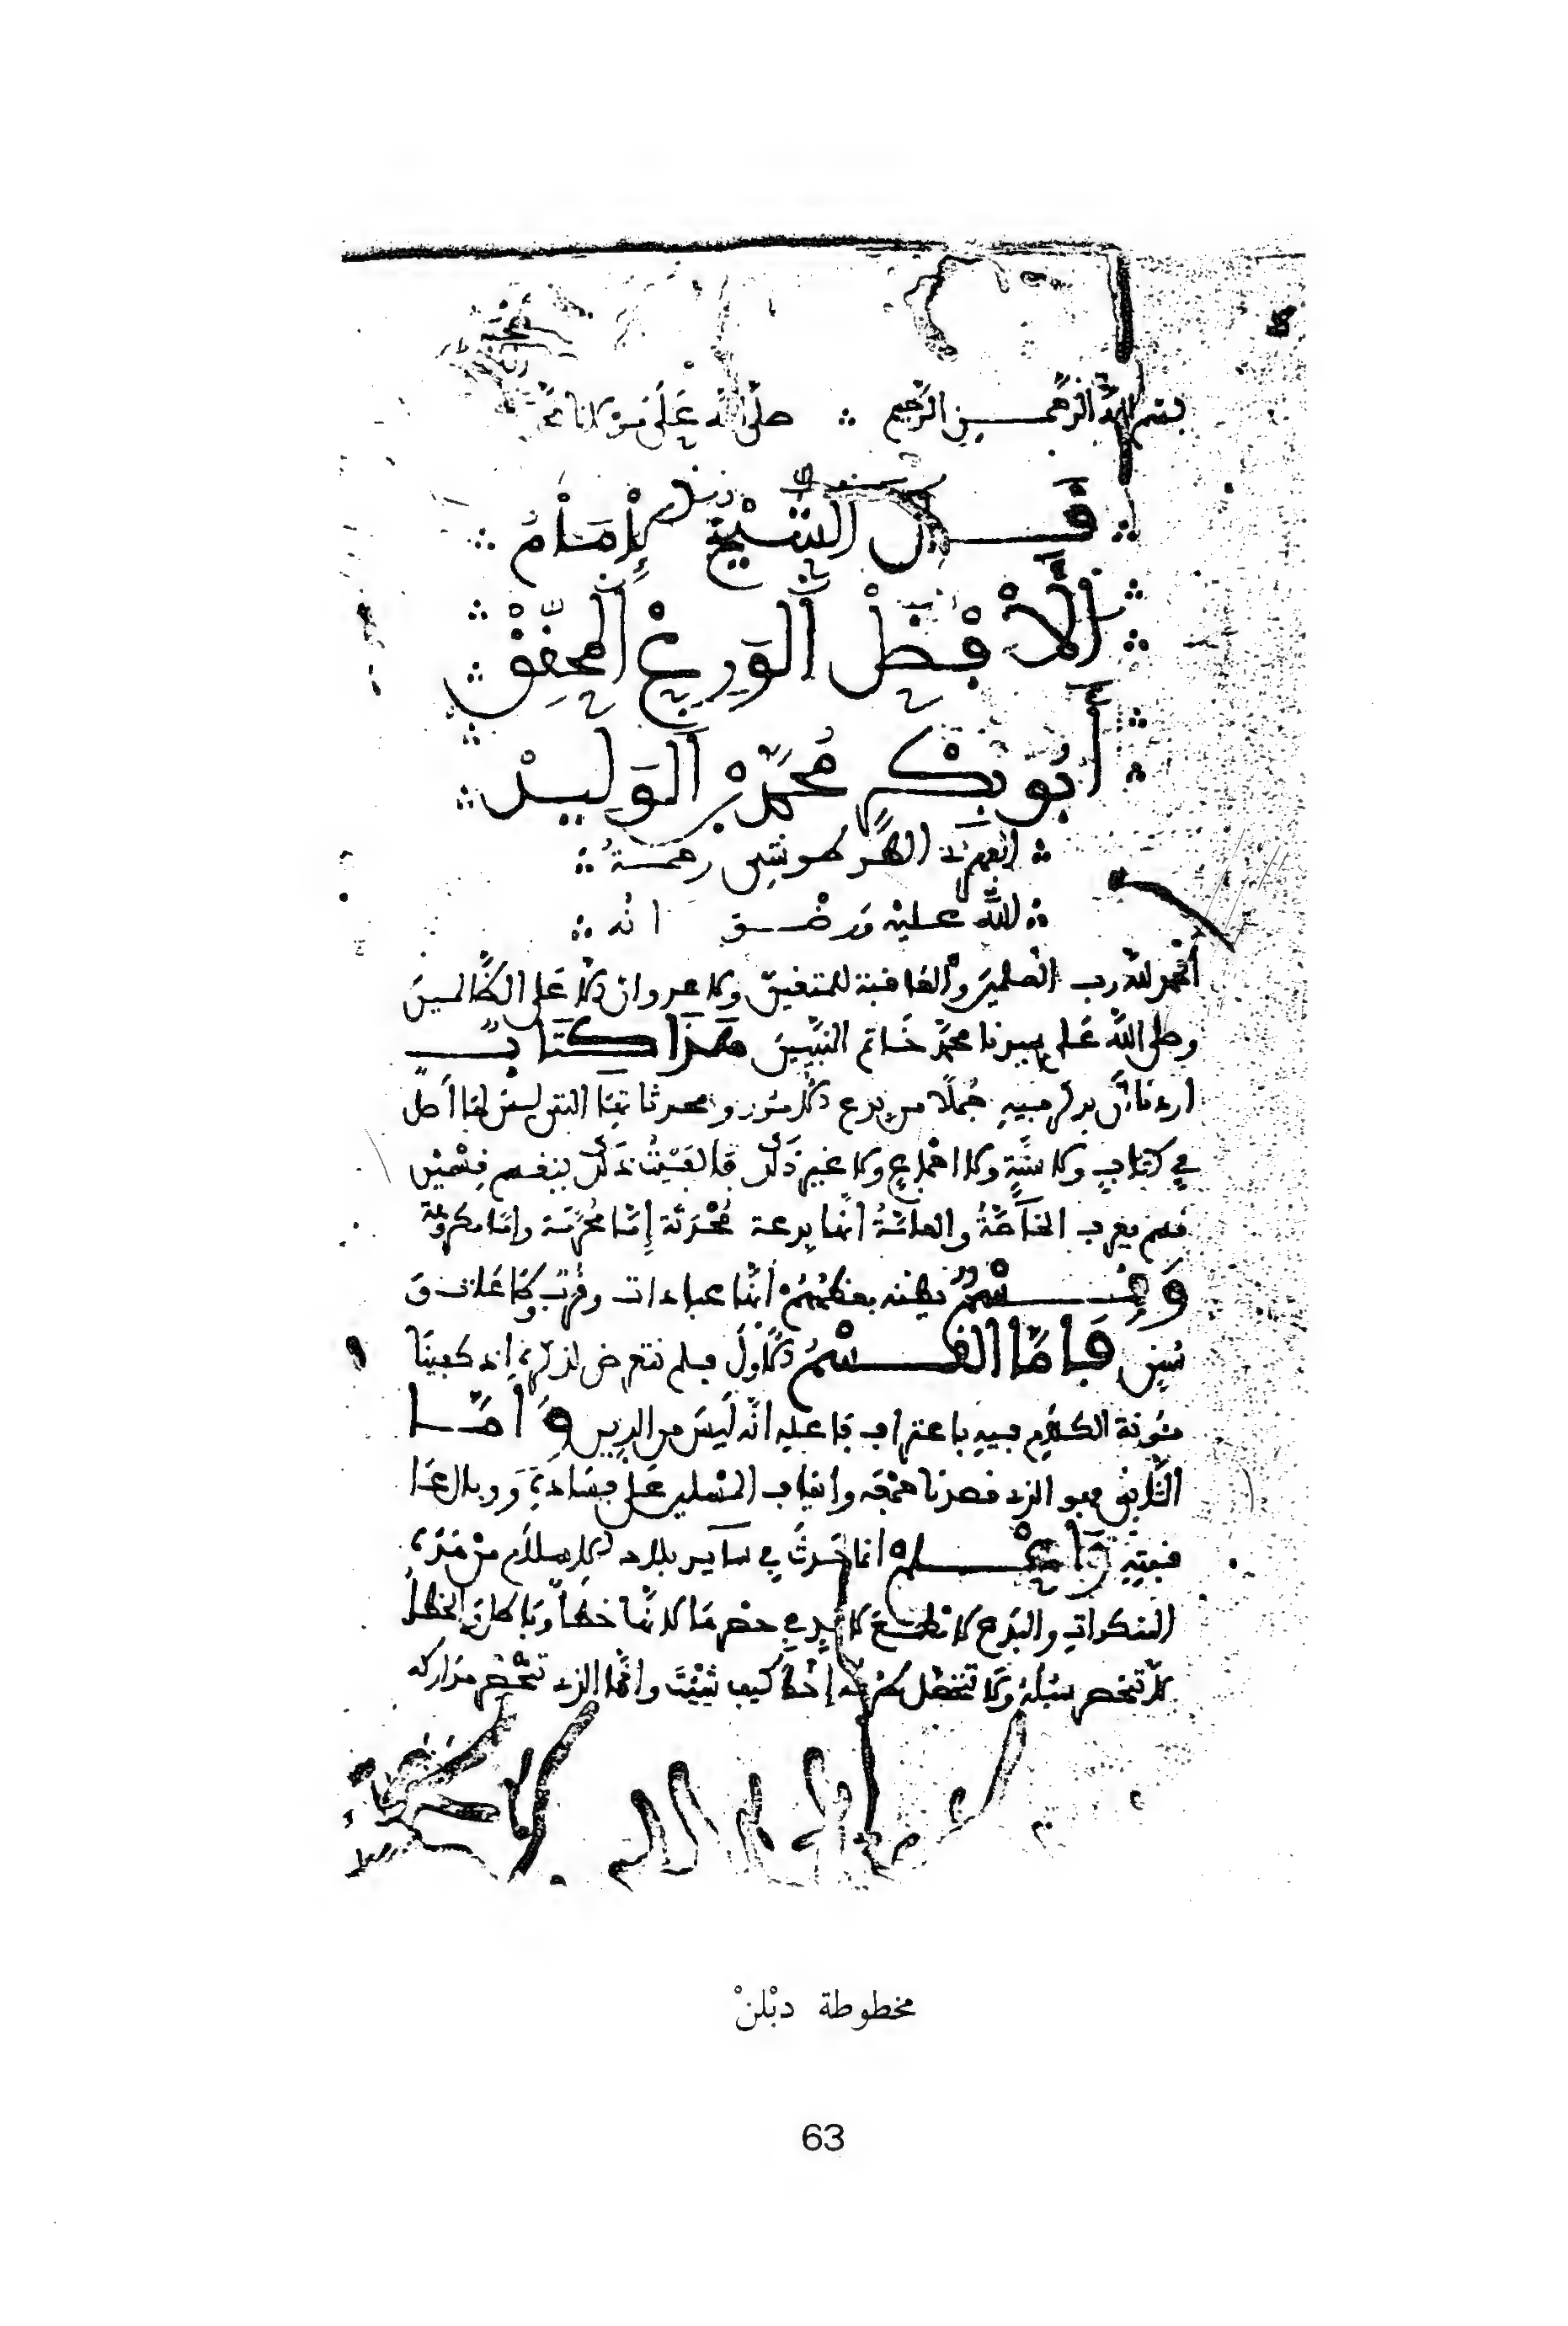 بسم الله الرحمـن الرحيم ∴ صلى الله على مولانا محمد
قـال الشيخ الإمام
الحافظ الورع المحقق
أبو بكر محمد بن الوليد
الفهري الطرطوشي رحمة
الله عليه ورضـوانه
الحمد لله رب العلمين والعاقبة للمتقين ولا عدوان الا على الظالمين
وصلى الله على سيدنا محمد خاتم النبيين هذا كتاب
اردنا أن نذكر فيه جملا من بدع الامور ومحدثاتها التي ليس لها أصل
في كتاب ولا سنة ولا اجماع ولا غير ذلك فالفيت ذلك ينقسم قسمين
قسم يعرف الخاصة والعامة انها بدعة محدثة إما محرمة واما مكروهة
وقسم يظنه بعضهم أنها عبادات وقرب وطاعات و
سنن فاما القسم الاول فلم نتعرض لذكره اذ كفينا
مئونة الكلام فيه باعتراف فاعله انه ليس من الدين وأما
الثاني فهو الذي قصدنا جمعه وايقاف المسلمين على فساده ووبال عا
قبته واعلم انما حدث في سآير بلاد الاسلام من هذه
المنكرات والبدع لا مطمع لأحد في حصرها لانها خطأ وباطل الخطأ
لا تنحصر سبله ولا تتحصل طرقه اخط كيف شئت وانما الذي تنحصر مداركه
مخطوطة دبْلنْ
63